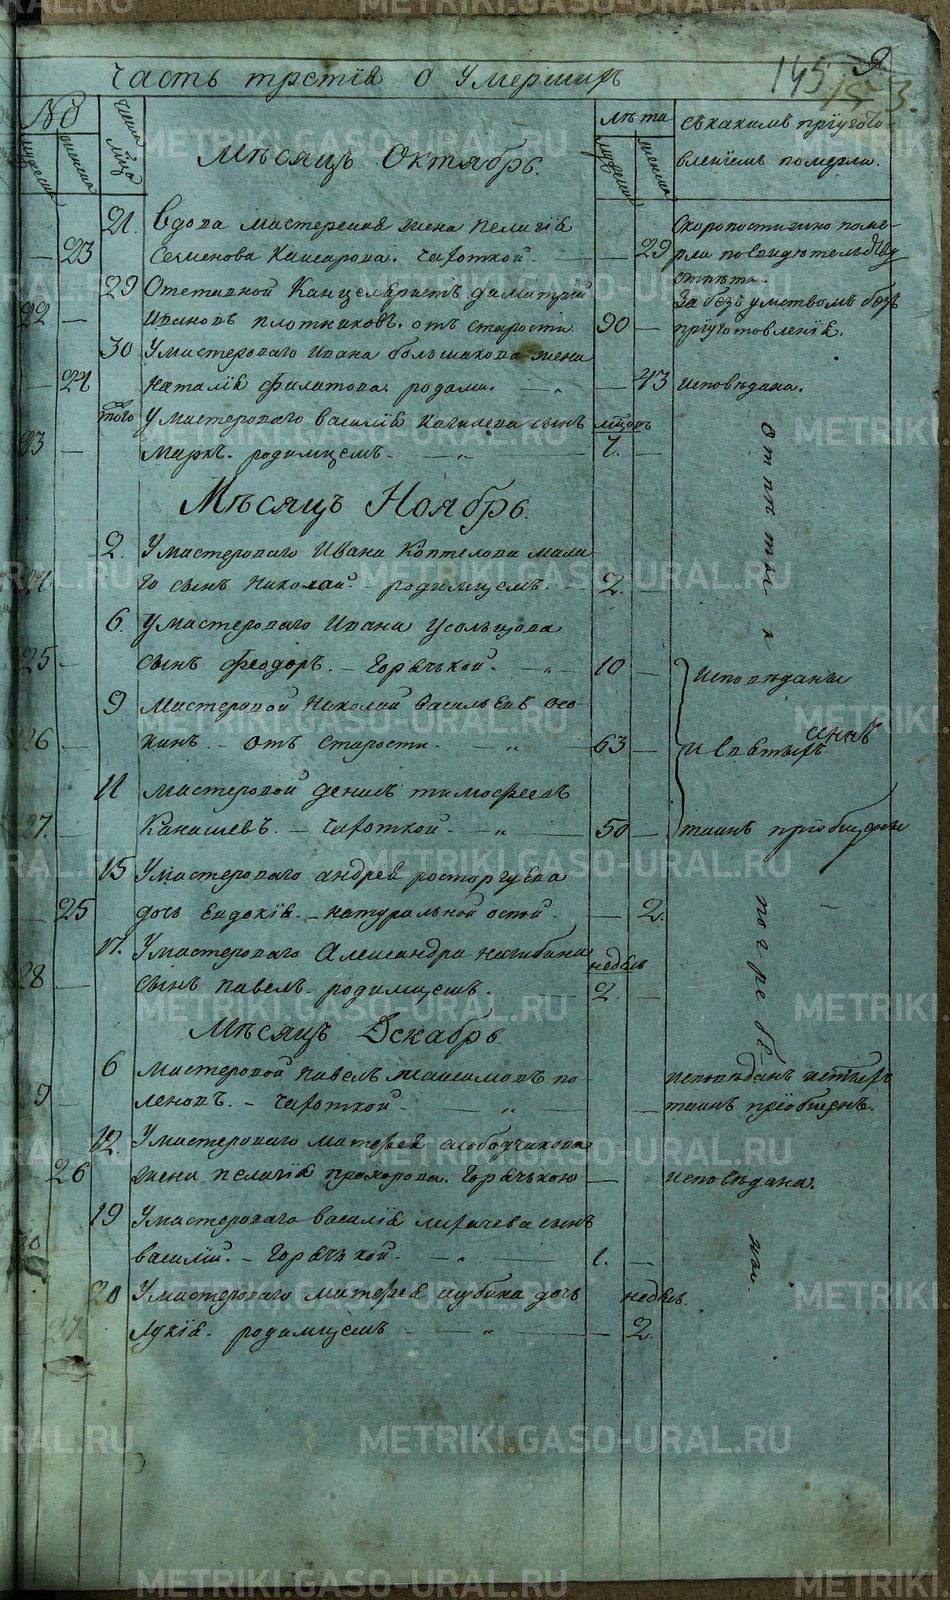 Часть третія о Умершихъ
145
153.
№
мужеска
женска
числа
лѣта
мужеска
женска
съ какимъ пріугото-
вленіемъ померли.
Мѣсяцъ Октябрь.
21. Вдова мастерская жена Пелагія
23 Семенова Кашарова. Чахоткой. 29
Скоропостижно поме-
рла
29 Отставной Канцеляристъ Димитрій
22 Ивановъ Плотниковъ. отъ старости. 90
За безъумствомъ безъ
пріуготовленія.
30 У мастероваго Ивана Большакова жена
24 Наталія Филатова. родами. 43 исповѣдана.
того У мастероваго Василія сынъ
23 Маркъ. родимцемъ. 7.
Мѣсяцъ Ноябрь.
2. У мастероваго Ивана Коптелова мала-
24 го сынъ Николай. родимцемъ. 2.
6. У мастероваго Ивана Усольцова
25 сынъ Феодоръ. Горячькой. 10
9 Мастеровой Николай Васильевъ Осо-
26 кинъ. отъ старости. 63
11 Мастеровой Денисъ Тимофеевъ
27. Канашевъ. Чахоткой. 50
исповѣданы
и
таинъ пріобщены
15 У мастероваго Андрея Расторгуева
25 дочь Евдокія. натуральной оспой. 2.
17. У мастероваго Александра Нагибина недѣль
28 сынъ Павелъ. родимцемъ. 2.
Мѣсяцъ Декабрь.
6 Мастеровой Павелъ Максимовъ По-
29 леновъ. Чахоткой.
исповѣданъ
таинъ пріобщенъ.
12. У мастероваго Матфея Слободчикова
26 жена Пелагія Прохорова. Горячькою исповѣдана.
19 У мастероваго Василія Лихачева сынъ
30 Василій. Горячькой. 1.
20 У мастероваго Матфея Шубина дочь недѣль.
27. Лукія. родимцемъ 2.
Отпѣты и
погребѣ-
ны.
METRIKI.GASO-URAL.RU